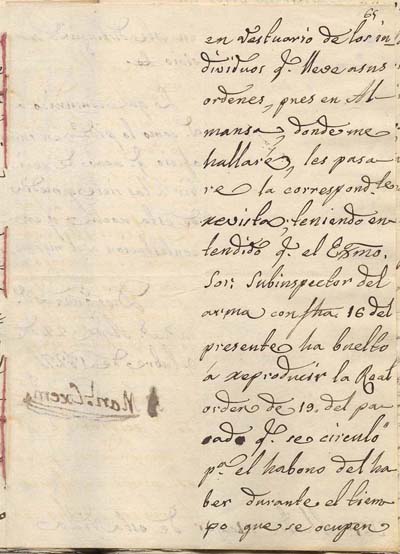 65
en vestuario de los in-
dividuos q.e lleve a sus
ordenes, pues en Al-
mansa, donde me
hallaré, les pasa
re la correspond.te
revista; teniendo en-
tendido q.e el Exmo.
Sor. Subinspector del
arma con fha. 16 del
presente ha buelto
a reproducir la Real
orden de 19. del pa-
sado q.e se circuló
p.a el habono del ha
ber durante el tiem-
po que se ocupen